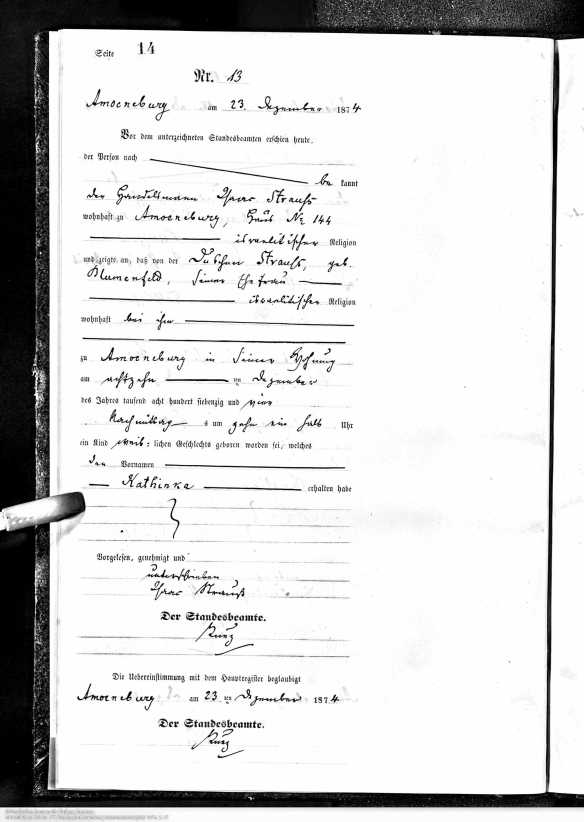 Seite 14
Nr. 13
Amoeneburg am 23. Dezember 1874
Vor dem unterzeichneten Standesbeamten erschien heute,
der Person nach
be kannt
der Handelsmann Isaac Strauß
wohnhaft zu Amoeneburg, Haus No 144
israelitischer Religion
und zeigte an, daß von der Strauß, geb.
Blumenfeld, seiner Ehefrau
israelitischer Religion
wohnhaft bei ihm
zu Amoeneburg in seiner Wohnung
am achtzehn ten Dezember
des Jahres tausend acht hundert siebenzig und vier
Nachmittag s um zehn ein halb Uhr
ein Kind weib= lichen Geschlechts geboren worden sei, welches
den Vornamen
Kathinka erhalten habe
Vorgelesen, genehmigt und
unterschrieben
Isaac Strauß
Der Standesbeamte.
Kurz
Die Uebereinstimmung mit dem Hauptregister beglaubigt
Amoeneburg am 23 ten Dezember 1874
Der Standesbeamte.
Kurz